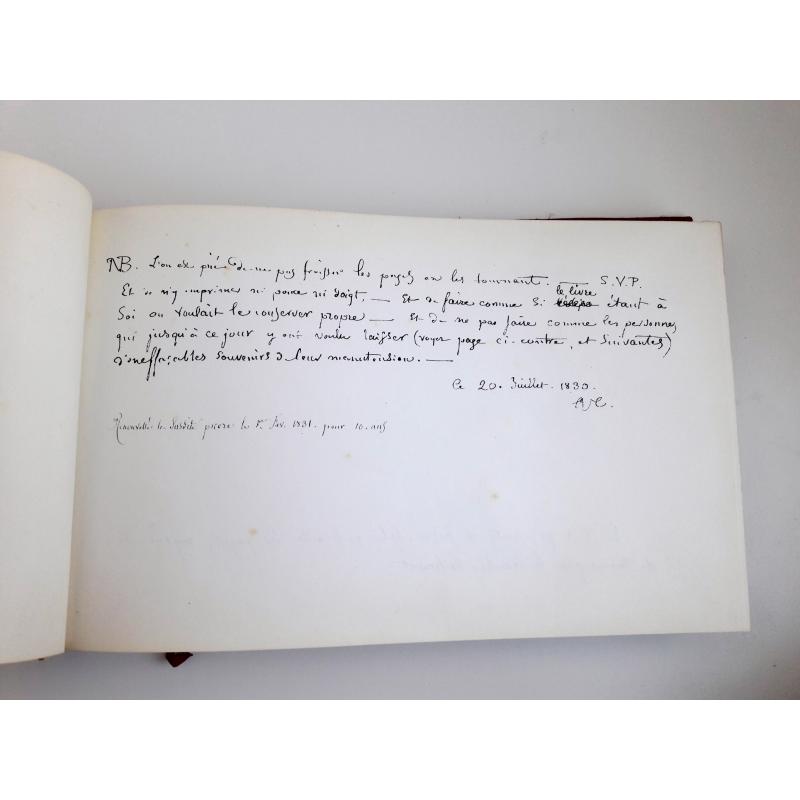 NB. L'on est prié de ne pas froisser les pages en les tournant. — S.V.P.
Et de n'y imprimer ni pouce ni doigt. — Et de faire comme si le livre étant à
Soi on voulait le conserver propre — Et de ne pas faire comme les personnes
qui jusqu'à ce jour y ont voulu laisser (voyez page ci-contre, et suivantes)
d'ineffaçables souvenirs de leur manutension. —
Ce 20. Juillet. 1830.
Renouvellé la susdite prière le 1er. 1831. pour 10. ans